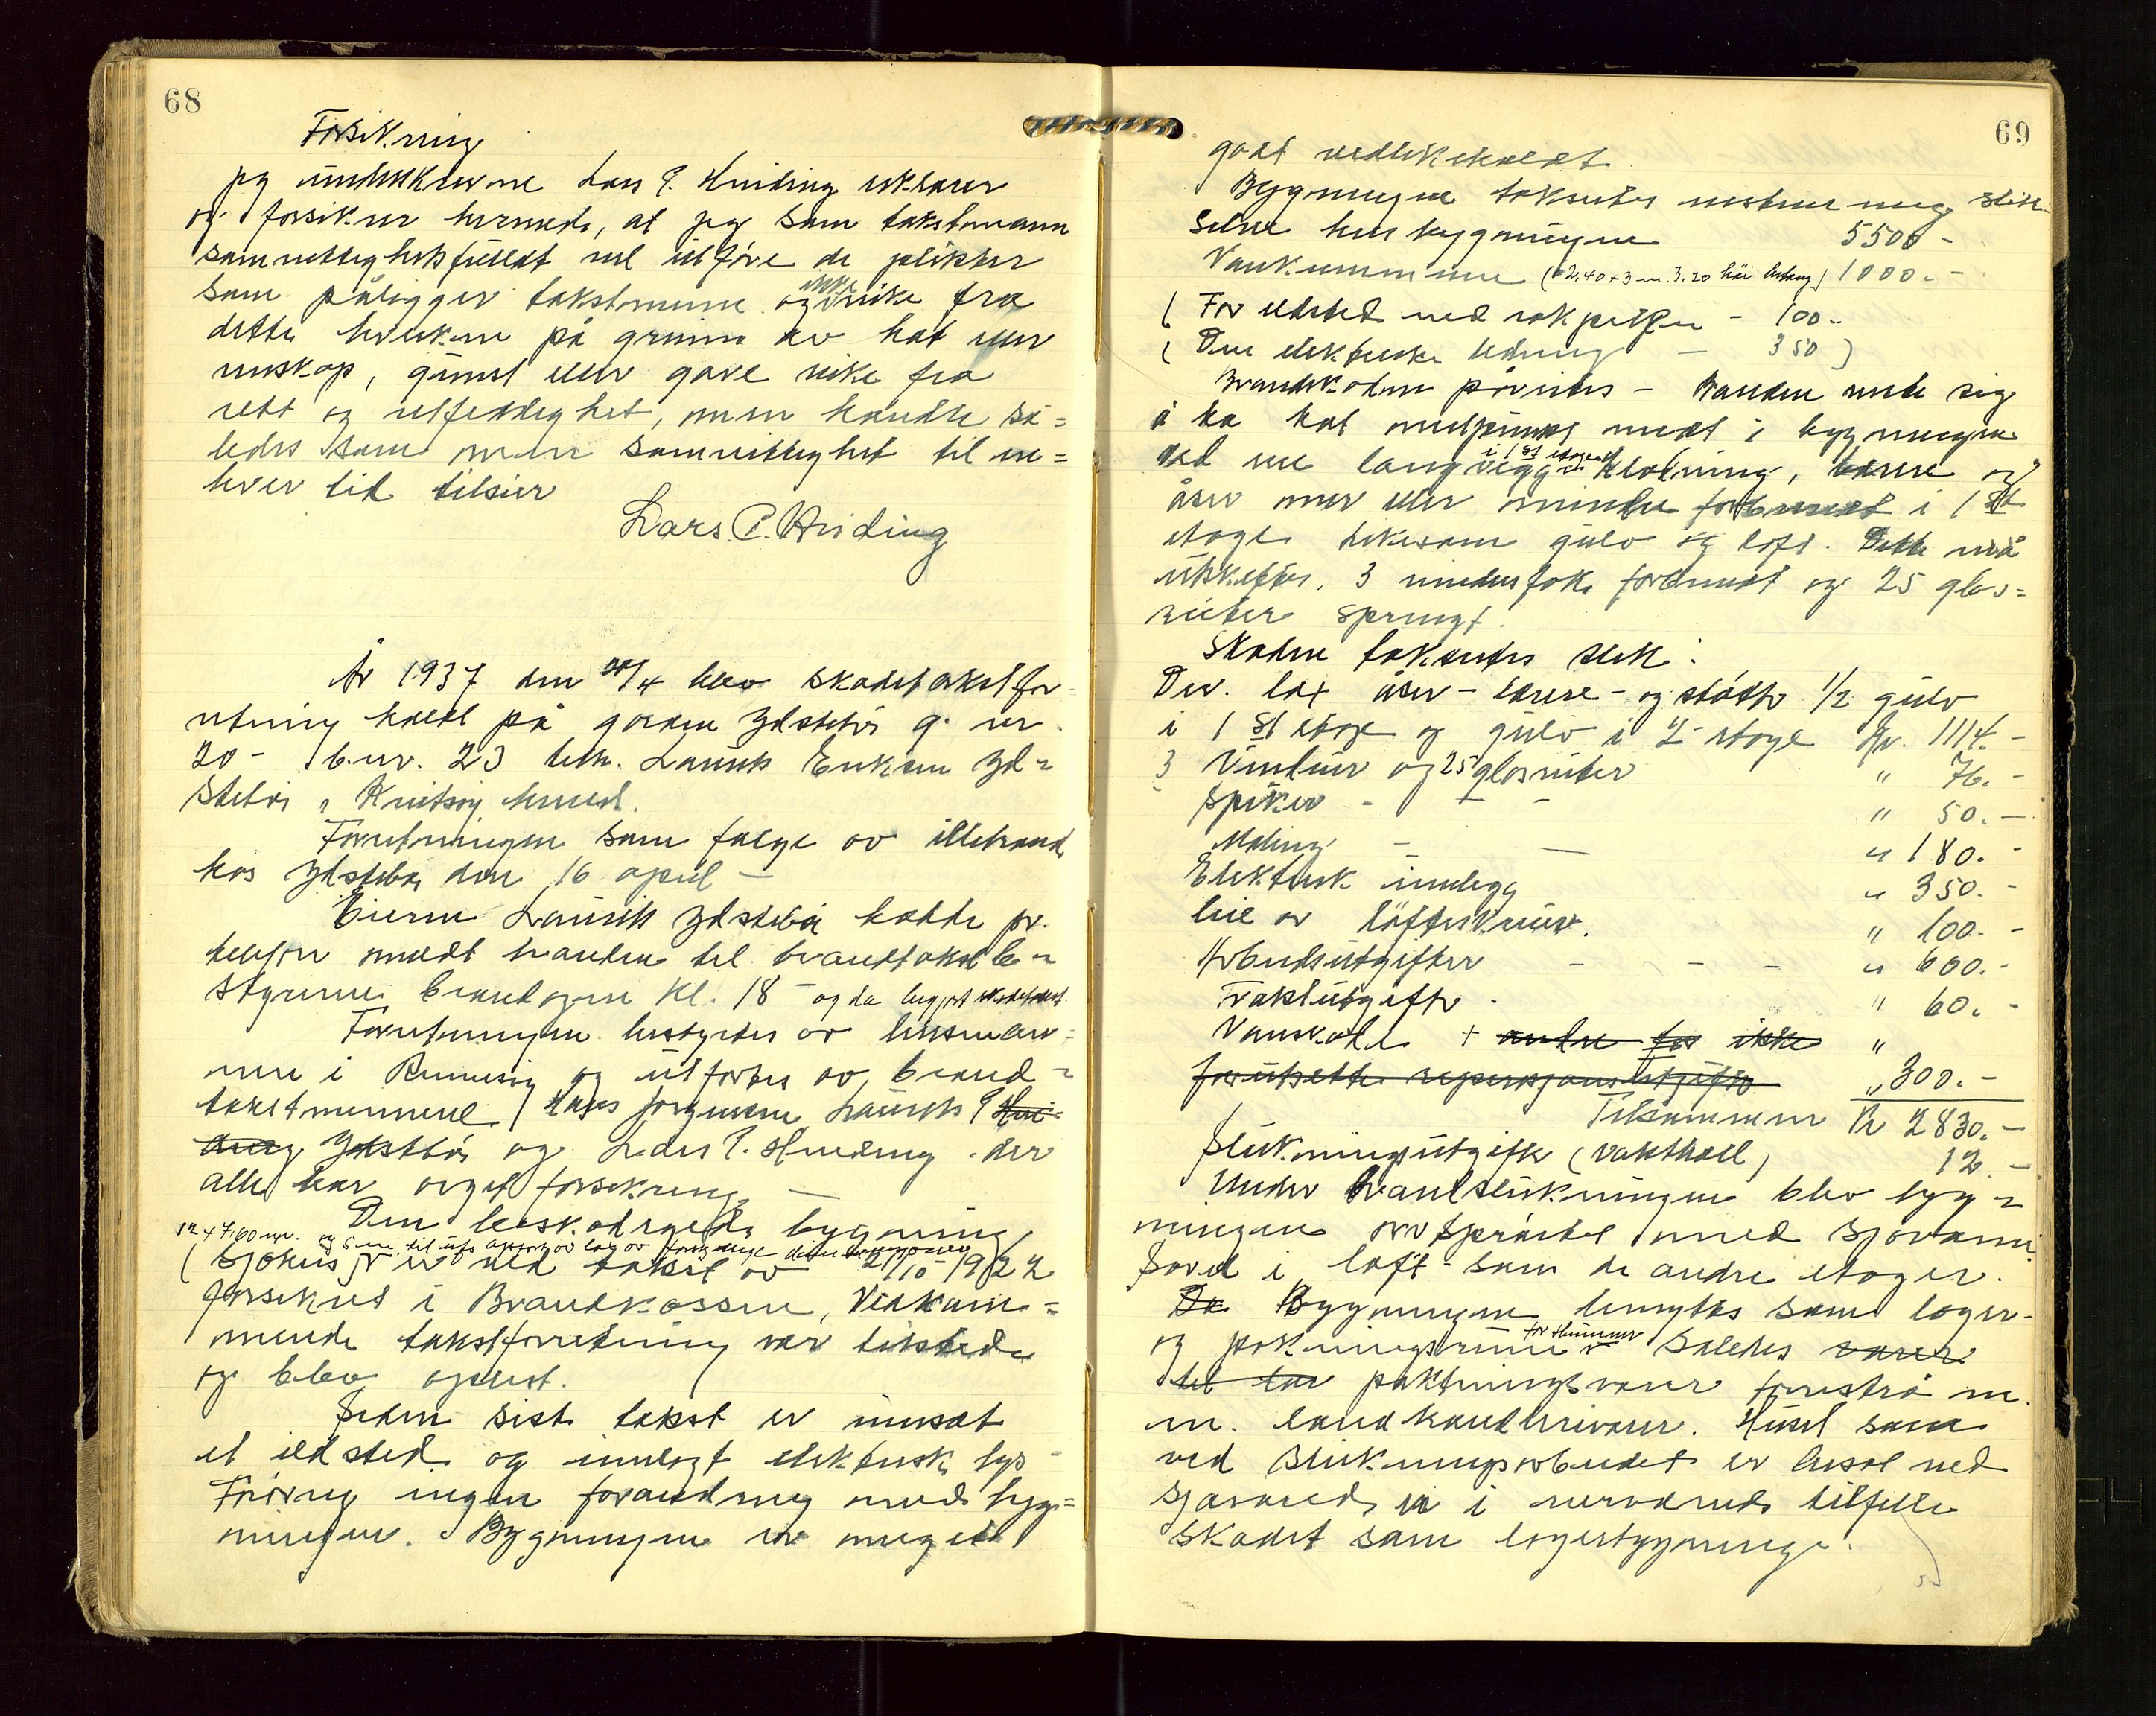 68
Forsikring
Jeg undertskrevne Lars P. Hviding erklærer
og forsikrer hermed, at jeg som takstmann
samvittighetsfulldt vil utføre de plikter
som påligger takstmenn og ikke vike fra
dette hverken på grunn av hat eller
vennskap, gunst eller gave vike fra
rett og rettferdighet, men handle så=
ledes som min samvittighet til en=
hver tid tilsier
Lars. P. Hviding
År 1937 den 20/4 blev skadetakstfor
retning holdt på garden Ydstebø g. nr.
20 - b.nr. 23 tilh. Laurits Eriksen Yd=
stebø, Kvitsøy herred.
Forretningen som følge av illebrand
hos Ydstebø den 16 april -
Eieren Laurits Ydstebø hadde pr.
telefon meldt branden til brandtakstbe=
styreren branddagen kl. 18 - og da begjært skadetakst.
Forretningen bestyrtes av lensman=
nen i Rennesøy og utførtes av brand=
takstmennene Hans Jørgensen Laurits P Hvi=
ding Ydstebø og Lars P. Hviding . der
alle har avgitt forsikring -
Den beskadigede bygning
12 x 7,60 m. og 5 m. til
(Sjøhus) er ved takst av 21/10 1922
forsikret i Brandkassen, Vedkom=
mende takstforretning var tilstede
og blev oplest.
Siden siste takst er innsat
et ildsted og innlagt elektrisk lys
Forøvrig ingen forandring med byg=
ningen. Bygningen er meget
69
godt vedlikeholdt
Bygningen takseres
Selve husbygningen 5500 -
Vannkummene (2,40 x 3 m. 3,20 høi ) 1000. -
( For ildsted med rökpipe - 100.
( Den elektriske ledning - 350 )
Brandskaden påvistes - Branden viste sig
å ha hat midtpunkt midt i bygningen
ved ene langvegg i 1st etage Kledning, og
åser mer eller mindre forbrendt i 1st
etage likesom gulv og loft. Dette må
utskiftes. 3 vinduer forbrendt og 25 glas=
ruter sprengt.
Skaden takseres slik:
Div. åser - og støtter 1/2 gulv
i 1st etage og gulv i 2 etage Kr. 1114. -
3 Vinduer og 25 glasruter " 76. -
Spiker - - - " 50. -
Maling - - " 180. -
Elektrisk innlegg " 350. -
leie av löfteskruer. " 100. -
Arbeidsutgifter - - - " 600. -
Fraktutgifter . " 60. -
Vannskade + andre for ikke "
forutsette reparasjonsutgifter " 300. -
Tilsammen Kr 2830. -
Slukningsutgifter (vakthold) 12. -
Under brandslukningen blev byg=
ningen oversprøitet med sjøvann
såvel i loft - som de andre etager.
De Bygningen benyttes som lager-
og pakningsrum for Hummer således varer
det tar pakningsvarer m
m. landhandlervarer. Huset som
ved slukningsarbeidet er oversprøitet med
sjøvand er i nærværende tilfelle
skadet som lagerbygning.